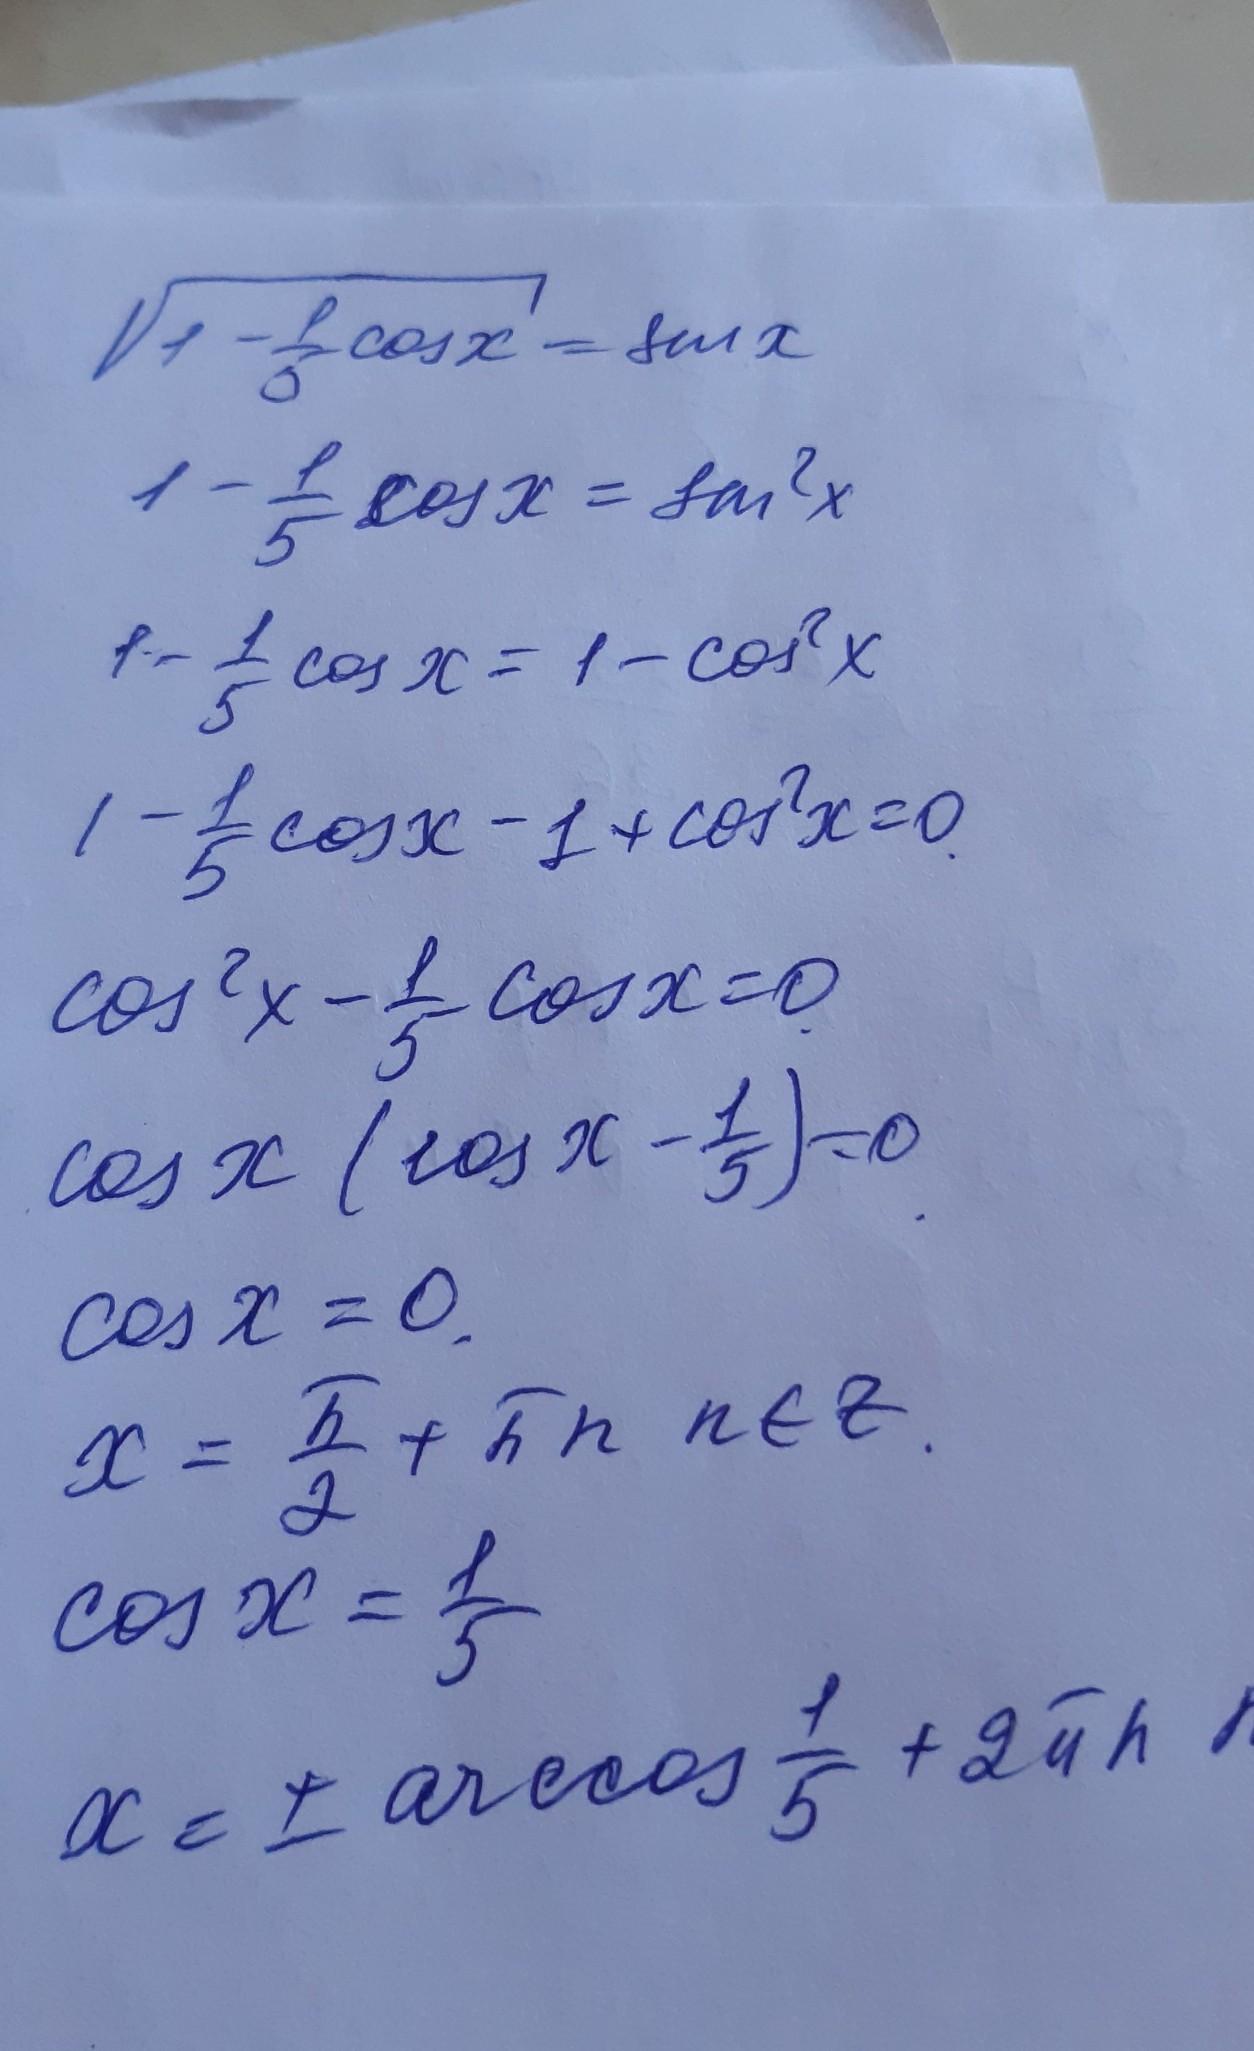 √(1 - 1/5 cos x) = sin x
1 - 1/5 cos x = sin²x
1 - 1/5 cos x = 1 - cos²x
1 - 1/5 cos x - 1 + cos²x = 0.
cos²x - 1/5 cos x = 0.
cos x (cos x - 1/5) = 0.
cos x = 0.
x = π/2 + πn n ∈ Z.
cos x = 1/5
x = ± arccos 1/5 + 2πn